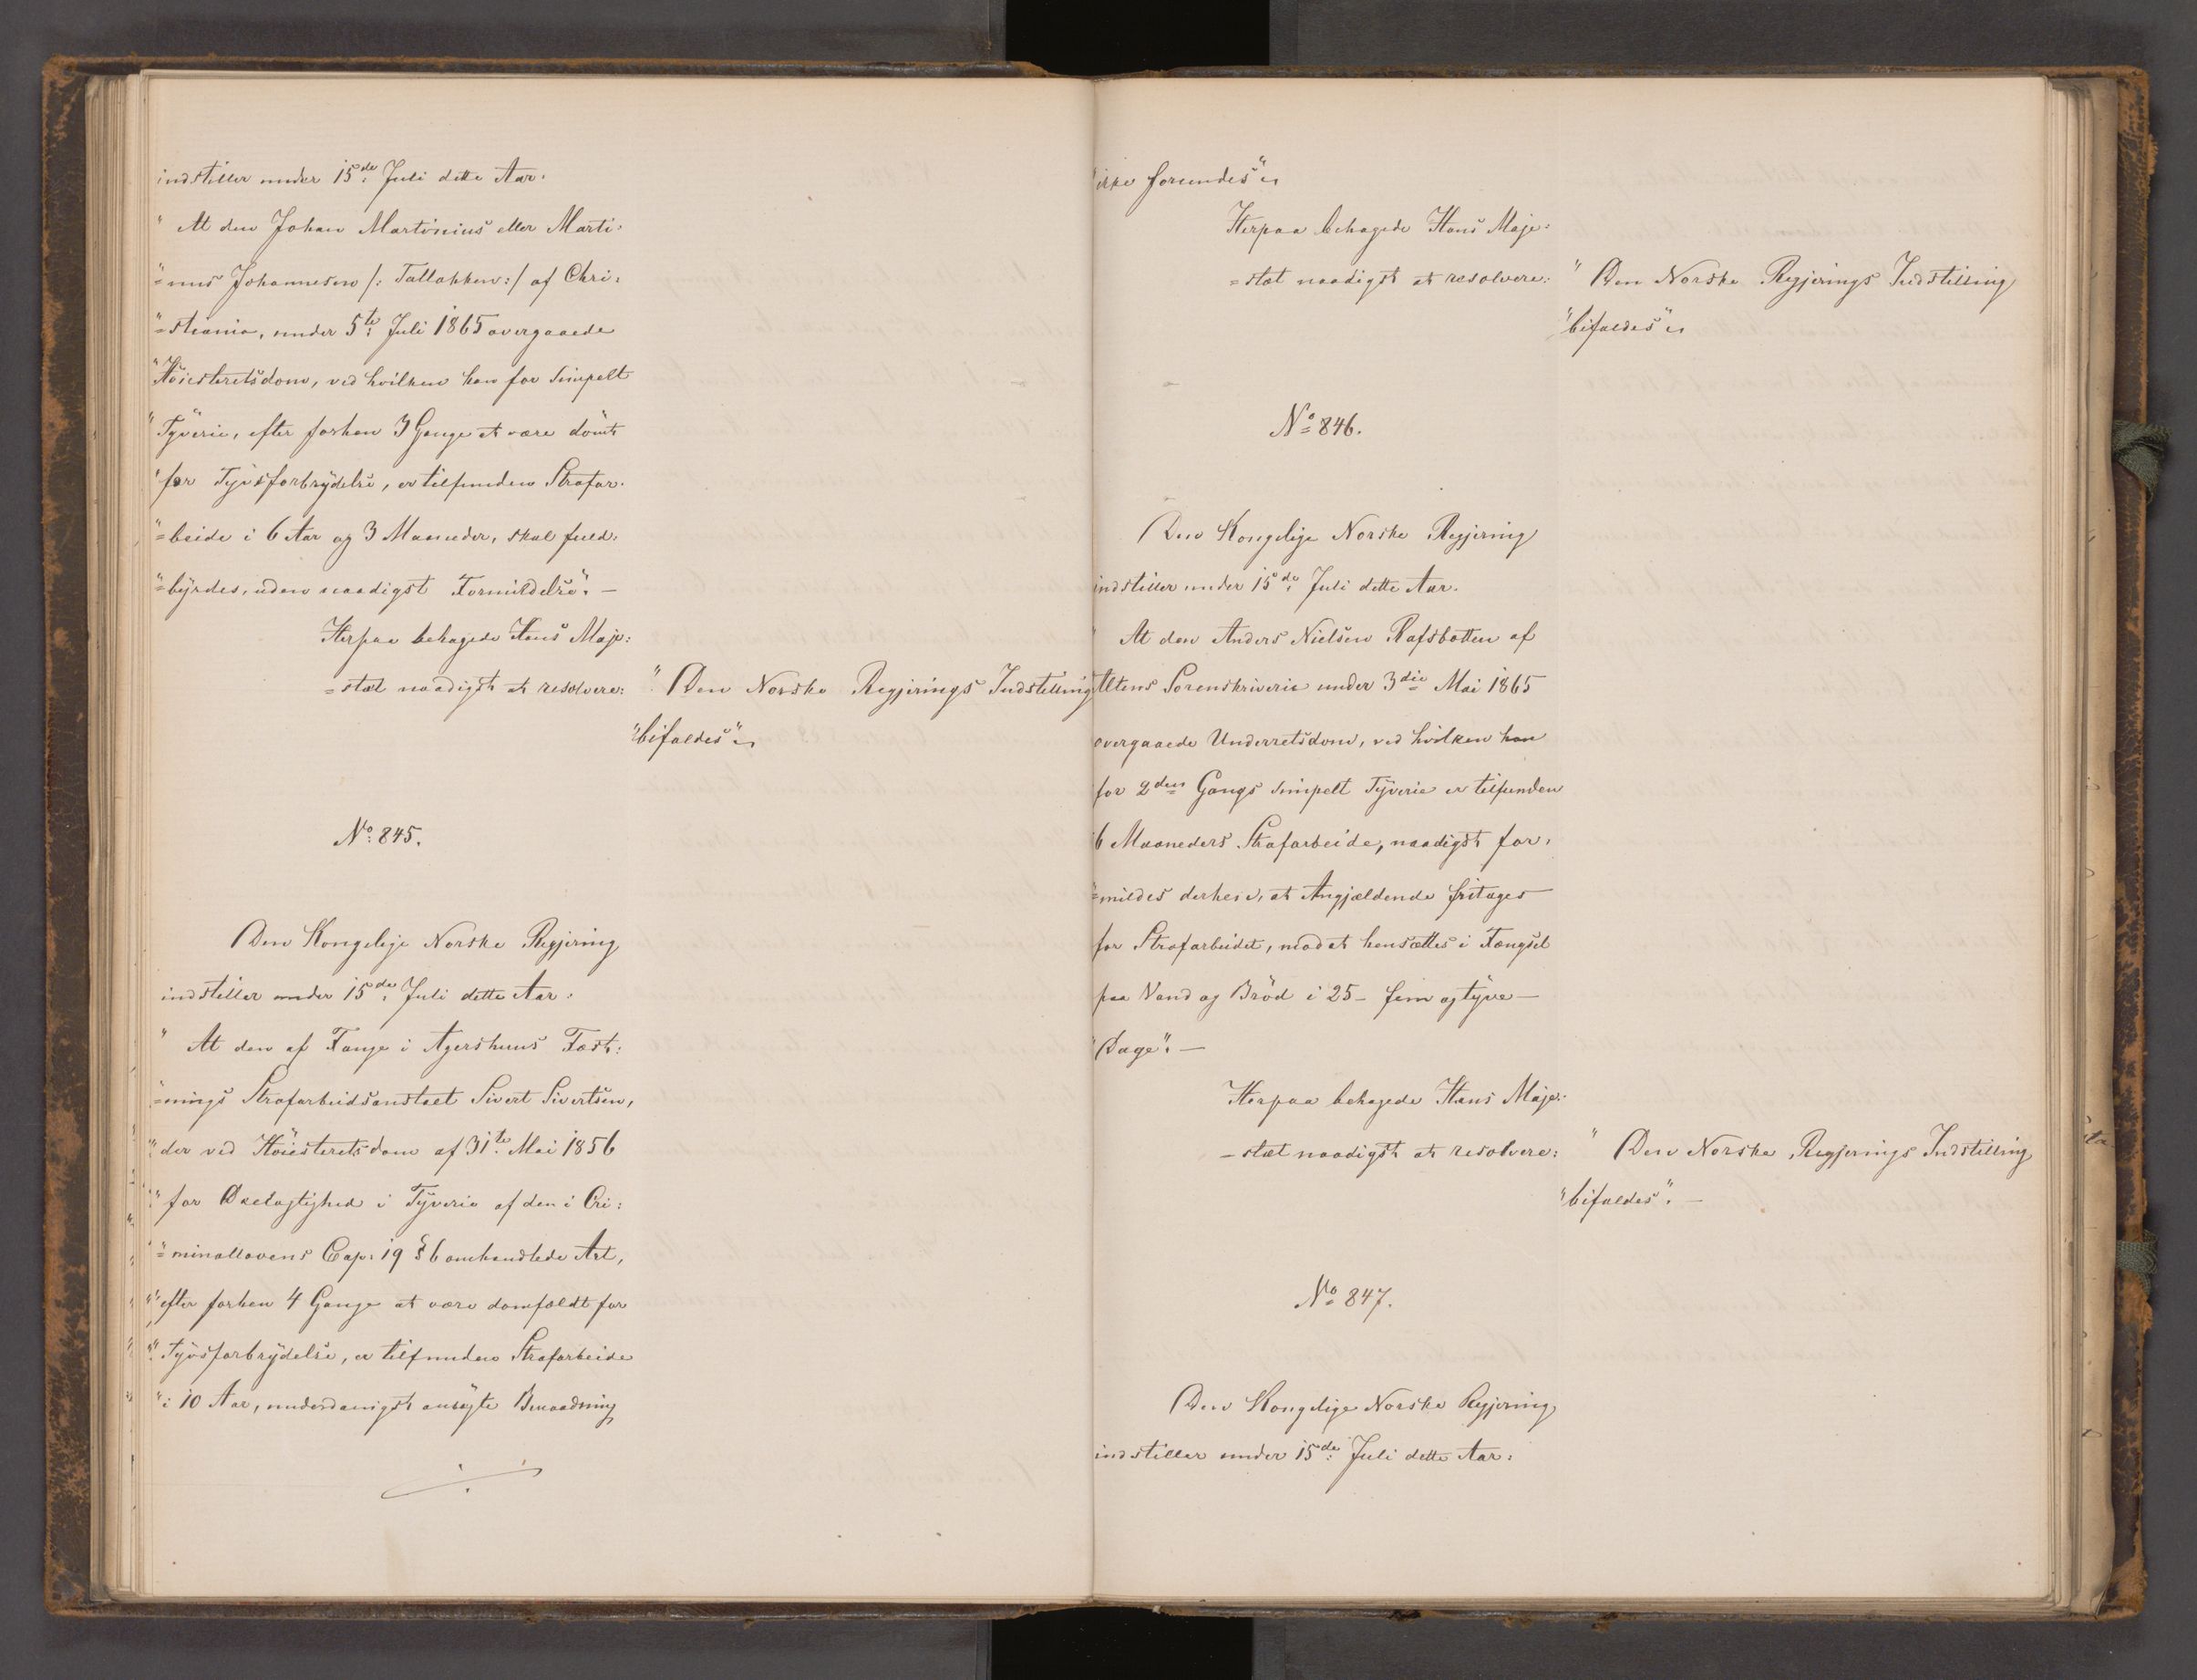 indstiller under 15de Juli dette Aar:
" At den Johan Martinius eller Marti-
"=nus Johannesen /: Tallakken :/ af Chri-
"=stiania, under 5te Juli 1865 overgaaede
"Höiesteretsdom, ved hvilken han for simpelt
"Tyverie, efter forhen 3 Gange at være dömt
"for Tyvsforbrydelse, er tilfunden Strafar-
"=beide i 6 Aar og 3 Maaneder, skal fuld-
"=byrdes, uden naadigst Formildelse". —
Herpaa behagede Hans Maje-
=stæt naadigst at resolvere: " Den Norske Regjerings Indstilling
"bifaldes".
No. 845.
Den Kongelige Norske Regjering
indstiller under 15de Juli dette Aar:
" At den af Fange i Agershuus Fæst-
"=nings Strafarbeidsanstalt Sivert Sivertsen,
"der ved Höiesteretsdom af 31te Mai 1856
"for Deelagtighed i Tyverie af den i Cri-
"=minallovens Cap: 19 § 6 omhandlede Art,
"efter forhen 4 Gange at være domfældt for
"Tyvsforbrydelse, er tilfunden Strafarbeide
"i 10 Aar, underdanigst ansøgte Benaadning
"ikke forundes".
Herpaa behagede Hans Maje-
=stæt naadigst at resolvere: " Den Norske Regjerings Indstilling
"bifaldes".
No 846.
Den Kongelige Norske Regjering
indstiller under 15de Juli dette Aar.
" At den Anders Nielsen Rafsbotten af
Altens Sorenskriverie under 3die Mai 1865
overgaaede Underretsdom, ved hvilken han
for 2den Gangs simpelt Tyverie er tilfunden
6 Maaneders Strafarbeide, naadigst for-
"=mildes derhen, at Angjældende fritages
for Strafarbeidet, mod at hensættes i Fængsel
paa Vand og Bröd i 25 - fem og tyve —
"Dage". —
Herpaa behagede Hans Maje-
=stæt naadigst at resolvere: " Den Norske Regjerings Indstilling
"bifaldes". —
No 847.
Den Kongelige Norske Regjering
indstiller under 15de Juli dette Aar: